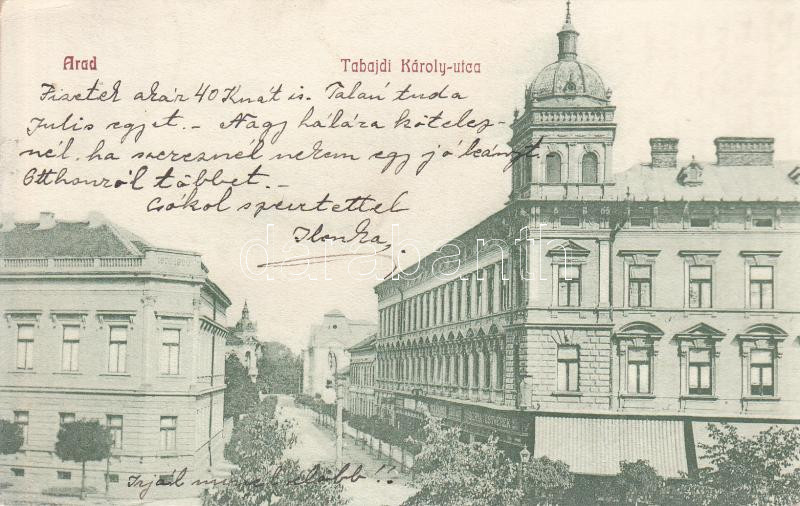 Arad
Tabajdi Károly-utca
Fizetek akár 40 Knát is. Talán tuda
Julis egyet. - Nagy hálára kötelez-
nél, ha szereznél nekem egy jó leányt.
Otthonról többet. -
Csókol szeretettel
Ilonka
darabanth
Irjál minél előbb!!